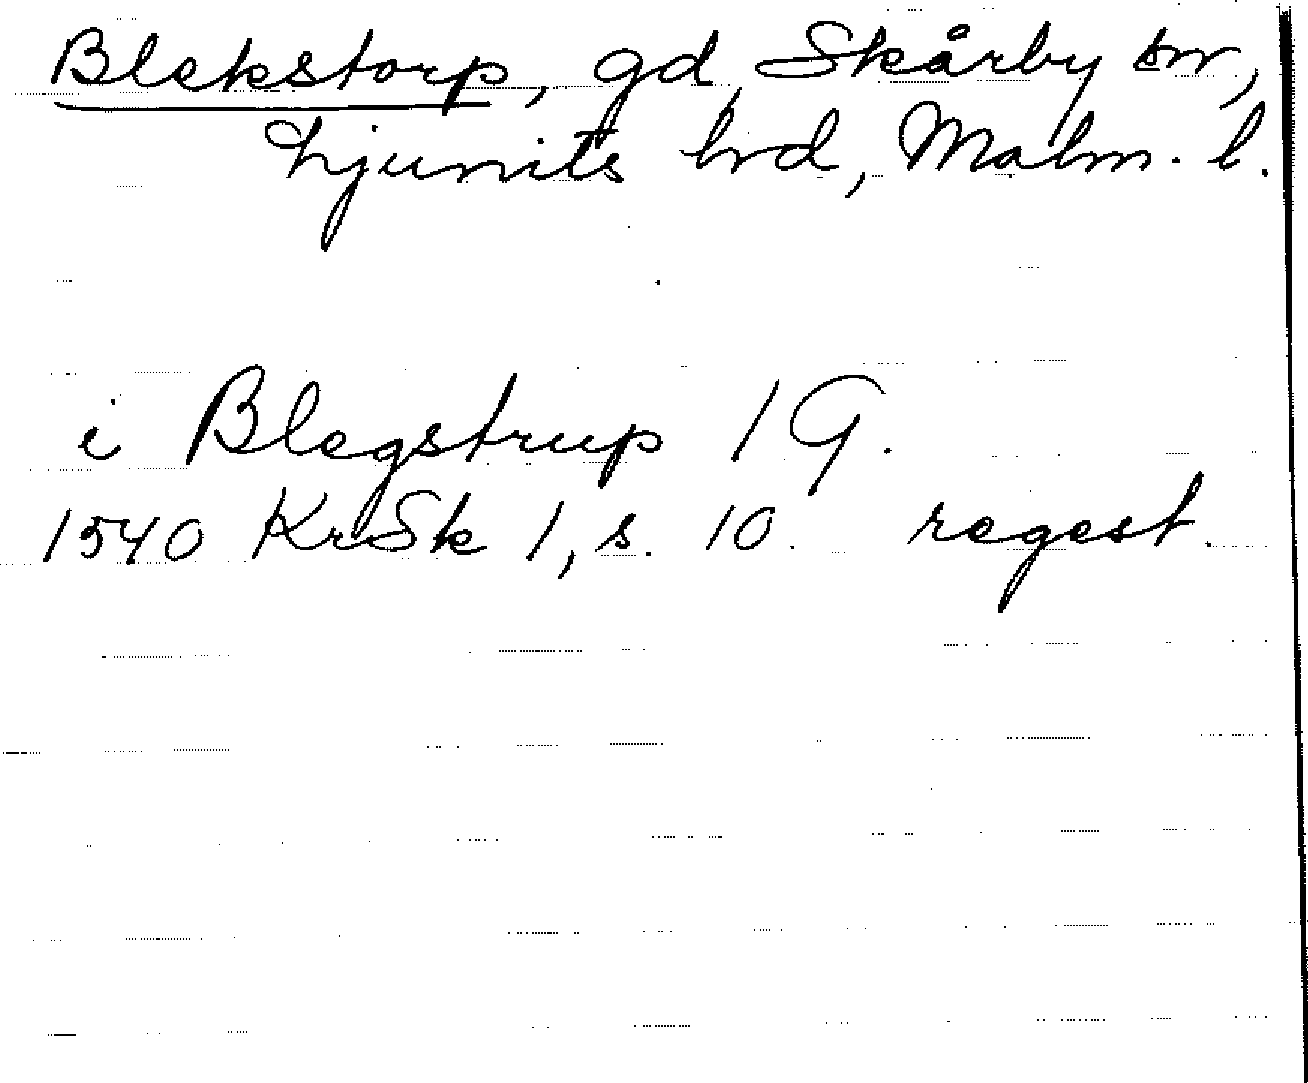 Blekstorp, gd, Skårby sn,
Ljunits hrd, Malm. l.
i Blegstrup 1 G.
1540 KrSk 1, s. 10. regest.